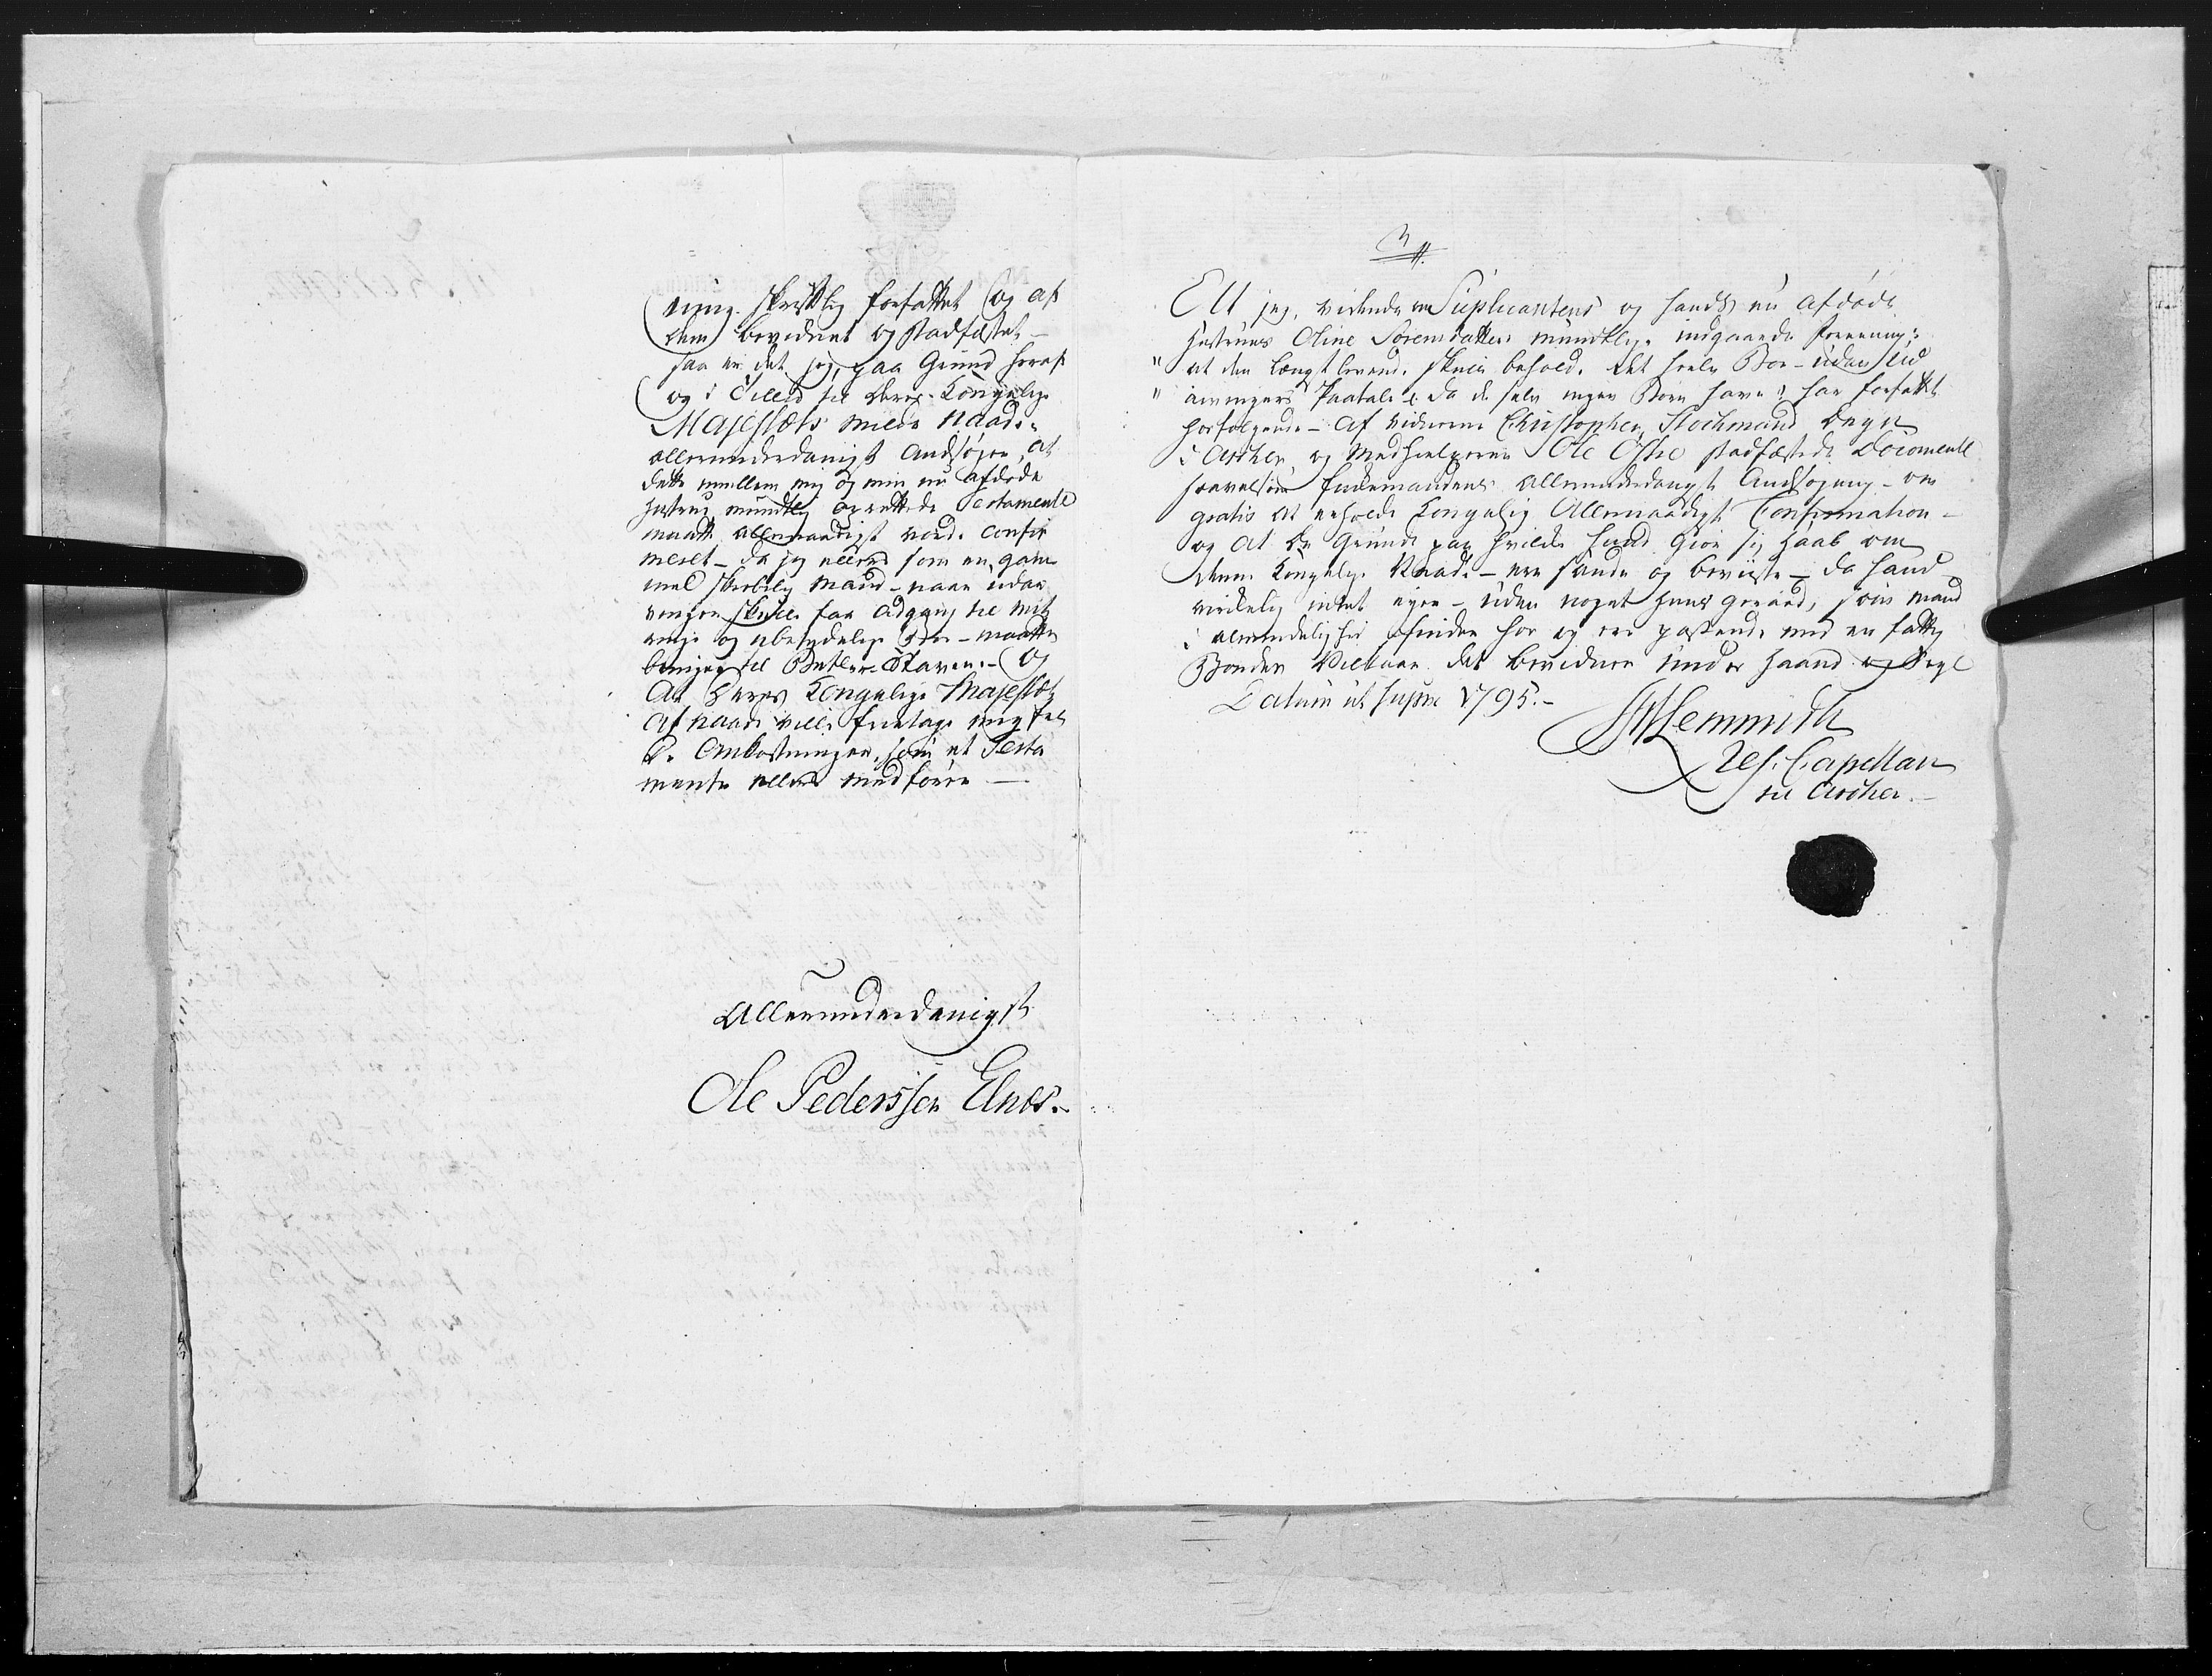 ning skriftlig forfattet og af
dem bevidnet og stadfæstet –
saa er det jeg, paa Grund heraf
og i Tillid til deres Kongelige
Majestæts milde Naade
allerunderdanigst Andsøger, at
dette mellem mig og min nu afdøde
Hustrue mundtlig oprettede Testamente
maatte allernaadigst vorde confir
meret – da jeg ellers som en gam
mel skrøbelig Mand – naar udar
vinger skulle faa adgang til mit
ringe og ubetydelige Boe – maatte
bringes til Betler Staven – og
At Deres Kongelige Majestæt
af Naade ville fritage mig for
de Omkostninger, som et Testa
mente ellers medfører –
Allerunderdanigst
Ole Pederssen Elnes.
3
At jeg, vidende om Suplicantens og hands nu afdøde
Hustrues Oline Sørensdatters mundtlige indgaaede Foreening:
" at den længstlevende skulle beholde det heele Boe – uden Ud
" arvingers Paatale – da de selv ingen Børn have: har forfattet
hosfølgende – af Vidnerne Christopher Stochmand Degn
i Ascher, og Medhielperen Ole Østre stadfæstede Document
saavelsom Enkemandens allerunderdanigst Andsøgning – om
gratis at erholde Kongelig Allernaadigst Confirmation –
og At de Grunde paa hvilke hand giør sig Haab om
denne Kongelige Naade – ere sande og beviiste – da hand
virkelig intet eyer – uden noget huus geraad, som mand
i almindelighed finder hos og er passende med en fattig
Bondes Vilkaar. det bevidner under Haand og Segl
Datum ut supra 1795. –
Lemmich
Res: Capellan
til Ascher. –